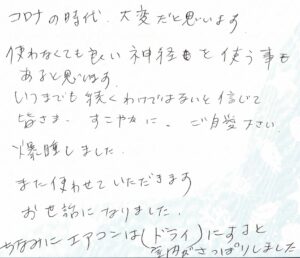 コロナの時代、大変だと思います
使わなくても良い神経もを使う事も
あると思います。
いつまでも続くわけではないと信じて
皆さま、すこやかに、ご自愛下さい
爆睡しました。
また使わせていただきます
お世話になりました。
ちなみにエアコンは(ドライ)にすると
室内がさっぱりしました